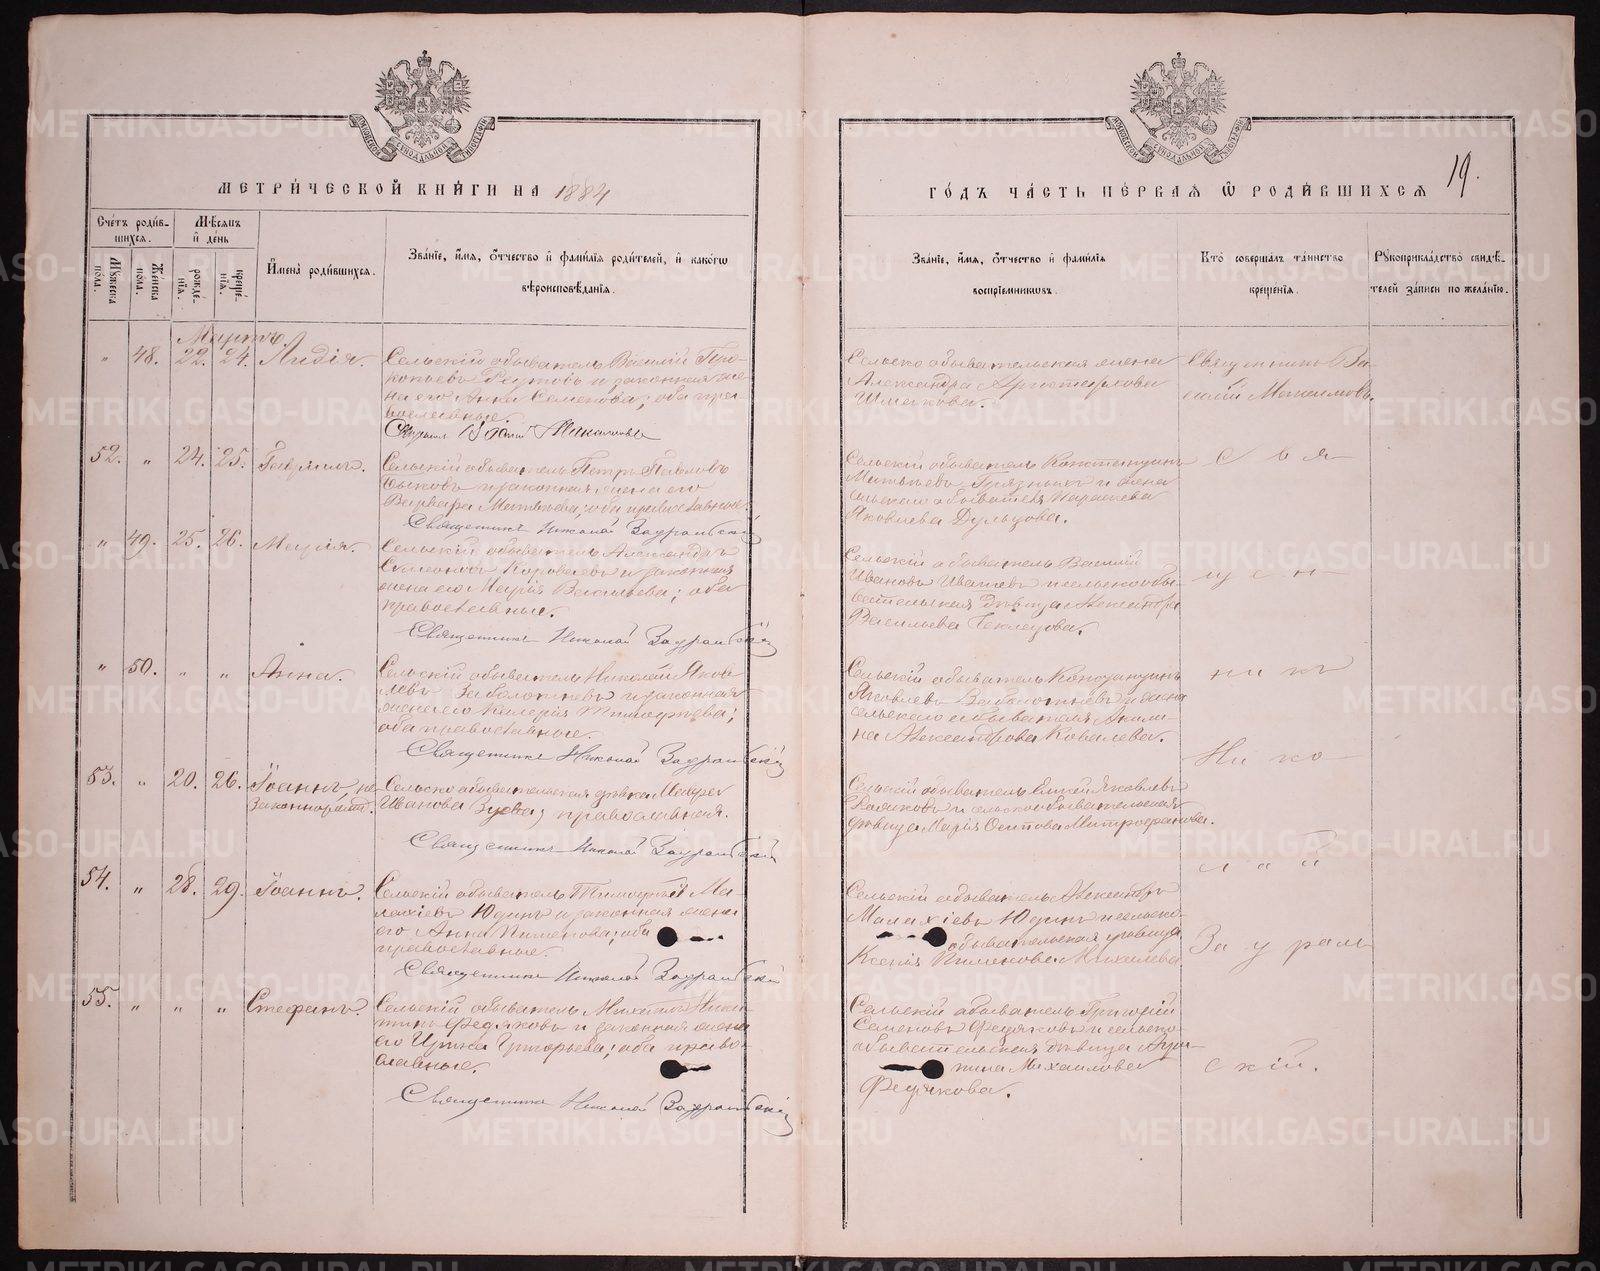 МЕТРИЧЕСКОЙ КНИГИ НА 1884
ГОДЪ ЧАСТЬ ПЕРВАЯ Ѡ РОДИВШИХСЯ
19.
Счетъ родив-
шихся.
Мѣсяцъ
и день
Мужеска пола.
Женска пола.
рожде-
нія.
креще-
нія.
Имена родившихся.
Званіе, имя, отчество и фамилія родителей, и какогѡ
вѣроисповѣданія.
Званіе, имя, отчество и фамилія
воспріемниковъ.
Кто совершалъ таинство
крещенія.
Рукоприкладство свидѣ-
телей записи по желанію.
Мартъ.
" 48. 22. 24. Лидія.
Сельскій обыватель Василій Про-
копьевъ и законная же-
на его Анна Семенова; оба пра-
вославные.
Василій Максимовъ
Сельско обывательская жена
Александра Аристархова
Священникъ Ва-
силій Максимовъ.
52. " 24. 25. Гавриилъ.
Сельскій обыватель Петръ Павловъ
Быковъ и законная жена его
Варвара Матвѣева; оба православные.
Священникъ Николай Зауральскій
Сельскій обыватель Константинъ
Матвѣевъ Грязныхъ и жена
сельскаго обывателя Параскева
Яковлева Дульцова.
С в я
" 49. 25. 26. Марія.
Сельскій обыватель Александръ
и законная
жена его Марія Васильева; оба
православные.
Священникъ Николай Зауральскій
Сельскій обыватель Василій
Ивановъ и сельско обы-
вательская дѣвица Александра
Васильева
щ е н
" 50. " " Анна.
Сельскій обыватель Николай Яков-
левъ Заболотневъ и законная
жена его Валерія Тимофѣева;
оба православные.
Священникъ Николай Зауральскій
Сельскій обыватель Константинъ
Яковлевъ Заболотневъ и жена
сельскаго обывателя Акили-
на Александрова Ковалева.
н и къ
Ни ко
53. " 20. 26. Іоаннъ, не-
законнорожд.
Сельско обывательская дѣвка Мавра
Иванова Зуева, православная.
Священникъ Николай Зауральскій
Сельскій обыватель Яковлевъ
и сельско обывательская
дѣвица Марія Осипова Митрофанова.
л а й
54. " 28. 29. Іоаннъ.
Сельскій обыватель Тимофѣй Ма-
лахіевъ Юдинъ и законная жена
его Анна Пименова; оба
православные.
Священникъ Николай Зауральскій
Сельскій обыватель Александръ
Малахіевъ Юдинъ и сельско-
обывательская дѣвица
Ксенія Пименова Михалева
За у раль
55. " " " Стефанъ.
Сельскій обыватель Никита Ники-
тинъ Федяковъ и законная жена
его Ирина Григорьева; оба право-
славные.
Священникъ Николай Зауральскій
Сельскій обыватель Григорій
Семеновъ Федяковъ и сельско-
обывательская дѣвица Ага-
пина Михаилова
Федякова.
с кій.
METRIKI.GASO-URAL.RU